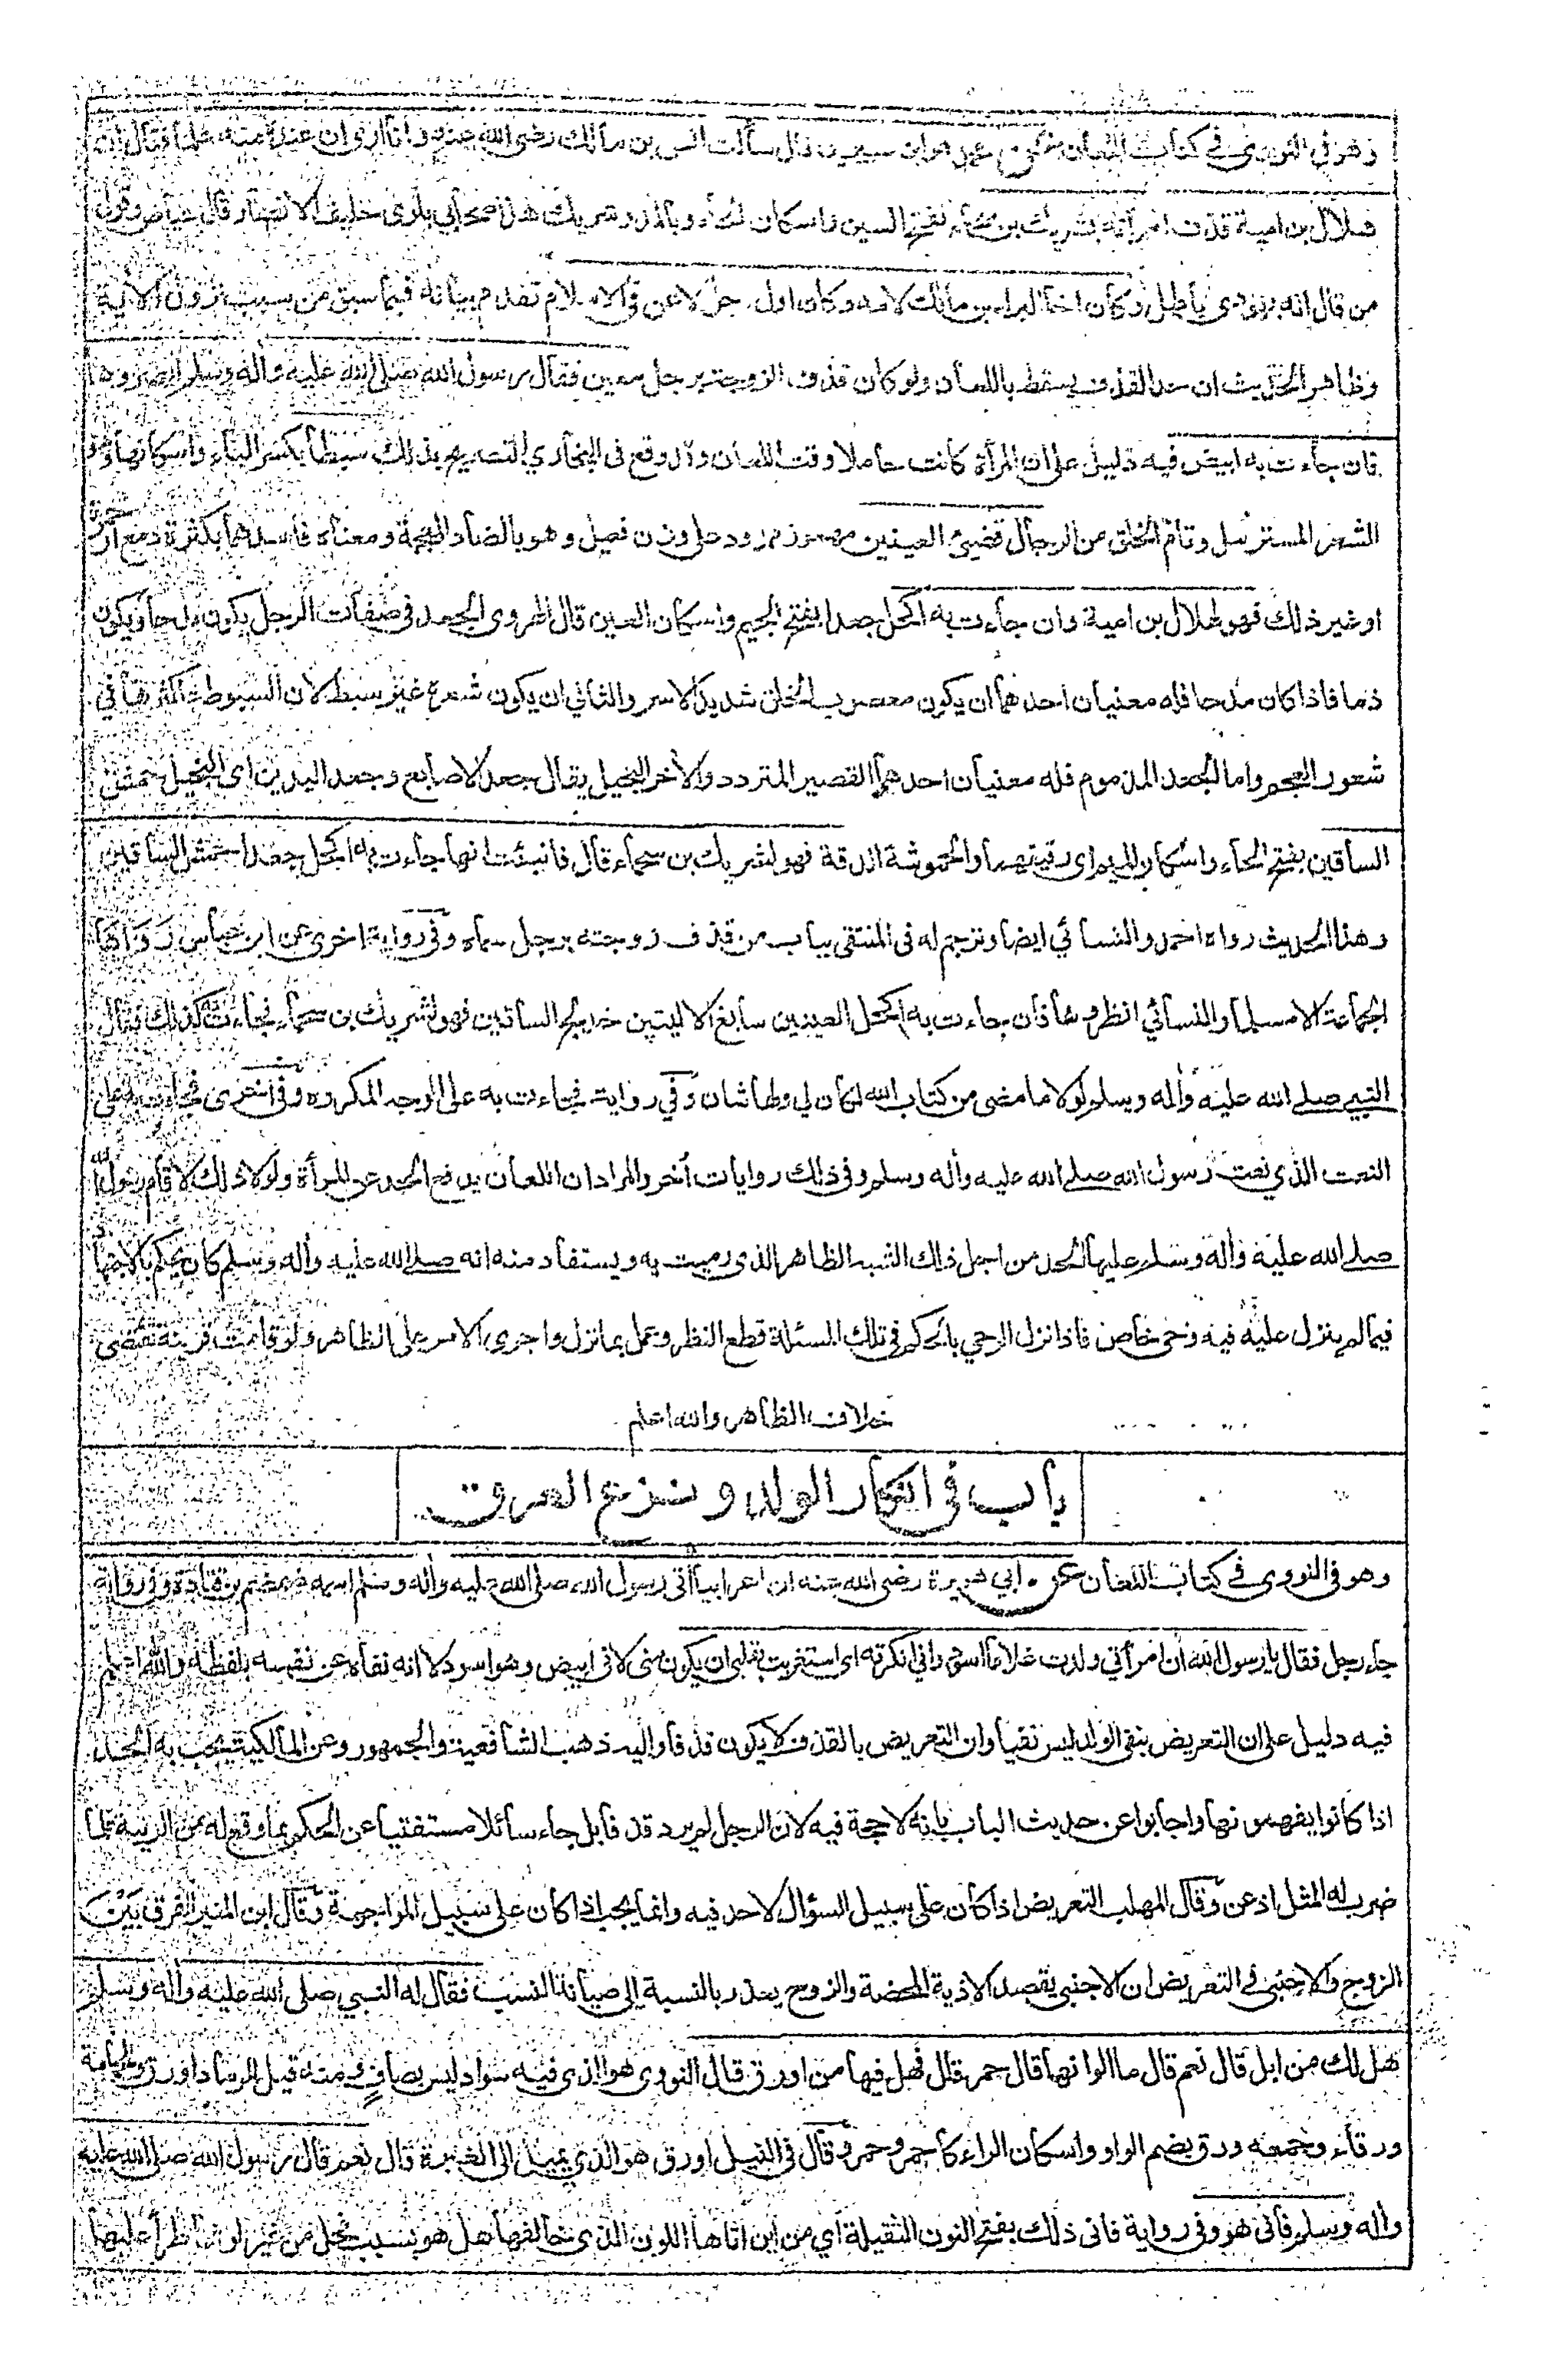 وهو في النووي في كتاب اللعان عن محمد هو ابن سيرين قال سألت انس بن مالك رضي الله عنه وانا ارى ان عنده منه علما فقال ان
هلال بن امية قذف امرأته بشريك بن سحماء بفتح السين واسكان الحاء وبالمد وشريك هذا صحابي بلوى حليف الانصار قال عياض وقول
من قال انه يهودى باطل وكان اخا البراء بن مالك لامه وكان اول رجل لاعن في الاسلام تقدم بيانه فيما سبق من سبب نزول الآية
وظاهر الحديث ان حد القذف يسقط باللعان ولو كان قذف الزوجة برجل معين فقال رسول الله صلى الله عليه وأله وسلم ابصروها
فان جاءت به ابيض فيه دليل على ان المرأة كانت حاملا وقت اللعان وقد وقع فى البخاري التصريح بذلك سبطا بكسر الباء واسكانها وهو
الشعر المسترسل وتام الخلق من الرجال قضيئ العينين مهموز ممدود على وزن فعيل وهو بالضاد المعجمة ومعناه فاسدهما بكثرة دمع او حمرة
او غير ذلك فهو لهلال بن امية وان جاءت به اكحل جعدا بفتح الجيم واسكان العين قال الهروى الجعد في صفات الرجل يكون مدحا ويكون
ذما فاذا كان مدحا فله معنيان احدهما ان يكون معصوب الخلق شديد الاسر والثاني ان يكون شعره غير سبط لان السبوطة اكثرها في
شعور العجم واما الجعد المذموم فله معنيان احدهما القصير المتردد والأخر البخيل يقال جعد الاصابع وجعد اليدين اى البخيل حمش
الساقين بفتح الحاء واسكان الميم اى رقيقهما والحموشة الدقة فهو لشريك بن سحماء قال فانبئت انها جاءت به اكحل جعدا حمش الساقين
وهذا الحديث رواه احمد والنسائي ايضا وترجم له فى المنتقى بباب من قذف زوجته برجل سماه وفي رواية اخرى عن ابن عباس رواها
الجماعة الا مسلما والنسائي انظروها فان جاءت به اكحل العينين سابغ الاليتين خدلج الساقين فهو لشريك بن سحماء فجاءت كذلك فقال
النبي صلى الله عليه وأله وسلم لولا ما مضى من كتاب الله لكان لي ولها شان وفي رواية فجاءت به على الوجه المكروه وفى اخرى فجاءت به على
النعت الذي نعت رسول الله صلى الله عليه وأله وسلم وفى ذلك روايات أخر والمراد ان اللعان يدفع الحد عن المرأة ولولا ذلك لاقام رسول الله
صلى الله عليه وأله وسلم عليها الحد من اجل ذلك الشبه الظاهر الذى رميت به ويستفاد منه انه صلى الله عليه وأله وسلم كان يحكم بالاجتهاد
فيما لم ينزل عليه فيه وحي خاص فاذا نزل الوحي بالحكم في تلك المسئلة قطع النظر وعمل بما نزل واجرى الامر على الظاهر ولو قامت قرينة تقتضى
خلاف الظاهر والله اعلم
باب في انكار الولد ونزع العرق
وهو فى النووى في كتاب اللعان عن ابي هريرة رضى الله عنه ان اعرابيا أتى رسول الله صلى الله عليه وأله وسلم اسمه ضمضم بن قتادة وفى رواية
جاء رجل فقال يا رسول الله ان امرأتي ولدت غلاما اسود واني انكرته اى استغربت بقلبي ان يكون منى لانى ابيض وهو اسود لا انه نفاه عن نفسه بلفظه والله اعلم
فيه دليل على ان التعريض بنفى الولد ليس نفيا وان التعريض بالقذف لا يكون قذفا واليه ذهب الشافعية والجمهور وعن المالكية يجب به الحد
اذا كانوا يفهمونها واجابوا عن حديث الباب بانه لا حجة فيه لان الرجل لم يرد قذفا بل جاء سائلا مستفتيا عن الحكم بما وقع له من الريبة فلما
ضرب له المثل اذعن وقال المهلب التعريض اذا كان على سبيل السؤال لا حد فيه وانما يجب اذا كان على سبيل المواجهة وقال ابن المنير الفرق بين
الزوج والاجنبى في التعريض ان الاجنبي يقصد الاذية المحضة والزوج يعذر بالنسبة الى صيانة النسب فقال له النبي صلى الله عليه وأله وسلم
هل لك من ابل قال نعم قال ما الوانها قال حمر قال فهل فيها من اورق قال النووى هو الذى فيه سواد ليس بصاف ومنه قيل للرماد اورق وللحمامة
ورقاء وجمعه ورق بضم الواو واسكان الراء كاحمر وحمر وقال فى النيل اورق هو الذي يميل الى الغبرة قال نعم قال رسول الله صلى الله عليه
وأله وسلم فأنى هو وفى رواية فانى ذلك بفتح النون الثقيلة اي من اين اتاها اللون الذي خالفها هل هو بسبب فحل من غير لونها طرأ عليها